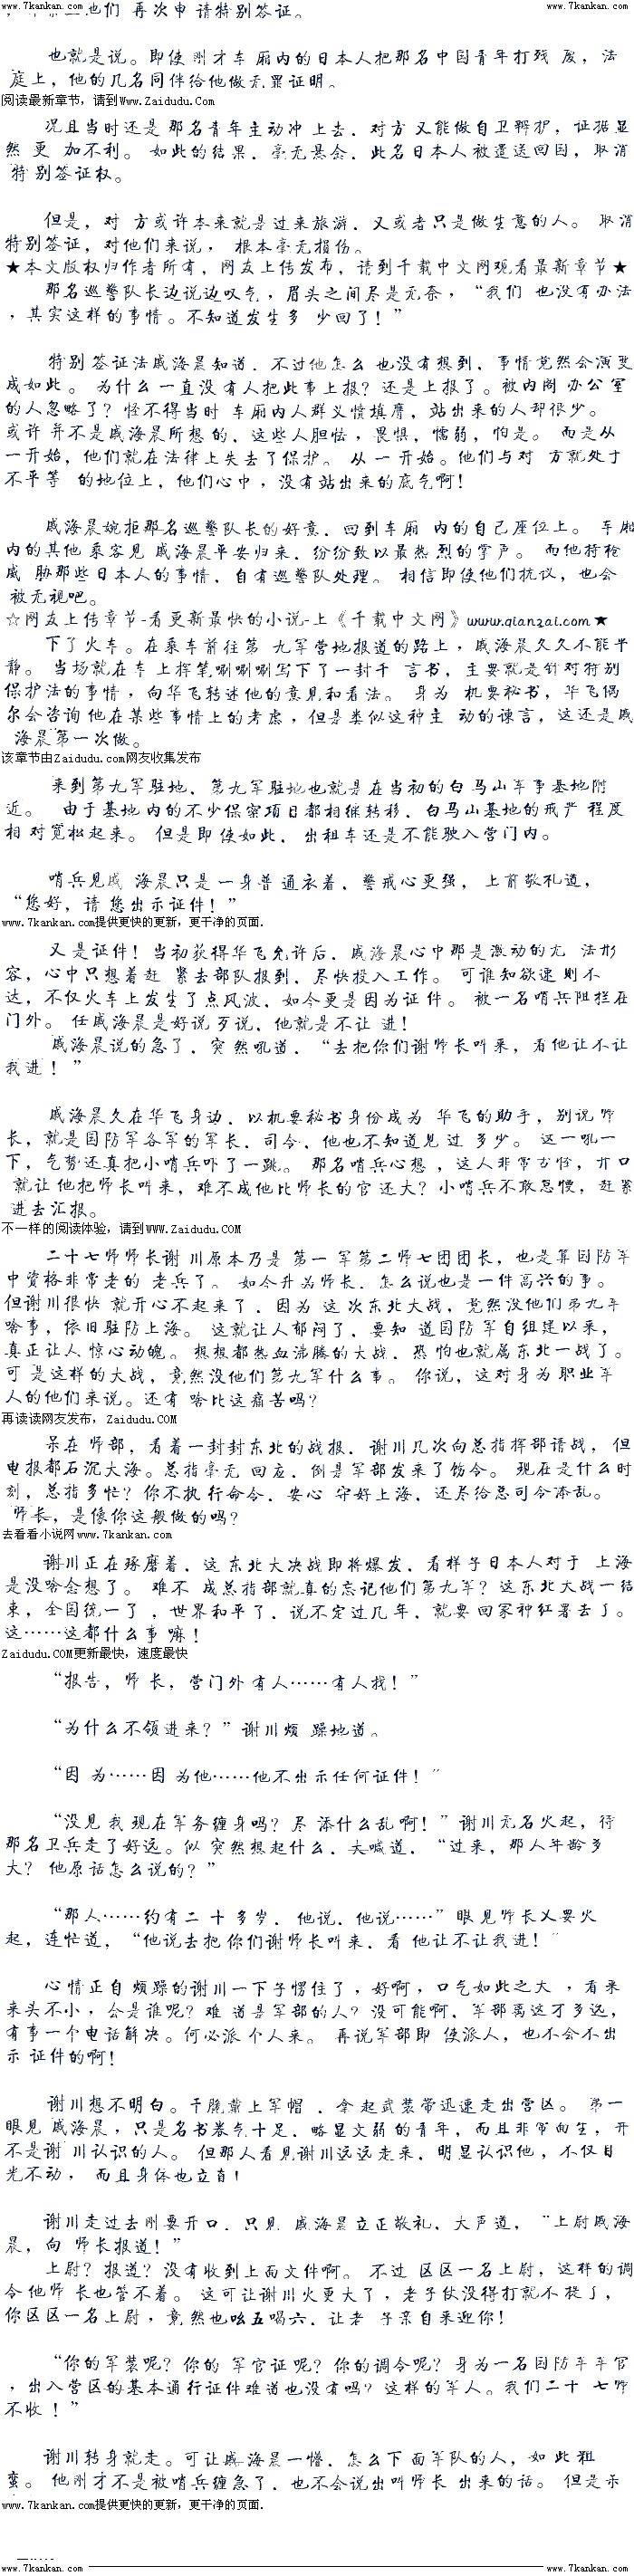 www.7kankan.com www.7kankan.com
他们 再次申 请特别签证。
也就是说。即使刚才车 厢内的日本人把那名中国青年打残 废，法
庭上，他的几名同伴给他做无罪证明。
阅读最新章节，请到Www.Zaidudu.Com
况且当时还是 那名青年主动冲 上去．对方 又能做自卫辩护，证据显
然 更 加不利。 如此的结果．毫无悬念．此名日本人被遣送回国，取消
特 别签证权。
但是，对 方或许本来就是过来旅游．又或者只是做生意的人。 取消
特别签证，对他们来说， 根本毫无损伤。
★本文版权归作者所有，网友上传发布，请到千载中文网观看最新章节★
那名巡警队长边说边叹气，眉头之间尽是无奈，“我们 也没有办法
，其实这样的事情。不知道发生多 少回了！”
特别 签证法戚海晨知道．不过他怎么 也没有想到．事情竟然会演变
成如此。 为什么一直没有人把此事上报？还是上报了。被内阁 办公 室
的人忽略了？怪不得当时 车厢内人群义愤填膺，站出来的人却很少。
或许 并不是戚海晨所想的．这些人胆怯，畏惧，懦弱，怕是。 而是从
一开始，他们就在法律上失去了保护。 从 一开始。他们与对 方就处于
不平等 的地位上，他们心中，没有站出来的底气啊！
戚海晨婉拒那名巡警队长的好意．回到车厢 内的自己座位上。 车厢
内的其他 乘客见 戚海晨平安归来．纷纷致以最热 烈的掌声。 而他持枪
威 胁那些日本人的事情．自有巡警队处理。 相信即使他们抗议，也会
被无视吧。
☆网友上传章节-看更新最快的小说-上《千载中文网》www.qianzai.com★
下了火车。在乘车前往第 九军营地报道的路上，戚海晨久久不能平
静。 当场就在车 上挥笔唰唰唰写下了一封千 言书．主要就是针对特别
保护法的事情，向华飞转述他的意见和看法。 身为 机要秘书，华飞偶
尔会咨询他在某些事情上的考虑，但是类似这种主 动的谏言，这还是戚
海晨第一次做。
该章节由Zaidudu.com网友收集发布
来到第九军驻地．第九军驻地也就是在当初的白马山军事基地附
近。 由于基地内的不少保密项目都相继转移．白马山基地的戒严 程度
相 对宽松起来。 但是即使如此．出租车还是不能驶入营门内。
哨兵见戚 海晨只是 一身普 通衣着．警戒心更强， 上前敬礼道，
“您好，请 您出示证件！”
www.7kankan.com提供更快的更新，更干净的页面.
又 是证件！当初获得华飞允许后．戚海晨心中那是激动的无 法形
容，心中只想着赶 紧去部队报到．尽快投入工作。 可谁知欲速 则不
达，不仅火车上发生了点风波．如今更是因为证件。 被一名哨兵阻拦在
门外。 任戚海晨是好说歹说．他就是不让 进！
戚海晨说的急了．突 然吼道．“去把你们谢师长叫来，看他让不让
我进！”
戚海晨久在华飞身边．以机要秘书身份成为 华飞的助手，别说师
长，就是国防军各军的军长．司令．他也不知道见 过 多少。 这一吼一
下，气势还真把小哨兵吓了一跳。 那名哨兵心想 ，这人非常古怪，开口
就让他把师长叫来，难不成他比师长的官还大？小哨兵不敢怠慢，赶紧
进去汇报。
不一样的阅读体验，请到WWW.Zaidudu.COM
二十七师师长谢 川原本乃是 第一 军第二师七团团长，也是算国防军
中资格非常老的 老兵了。 如今升为师长．怎么说也是一件高兴的事。
但谢川很快 就开心不起来了．因为 这 次东北大战，竟然没他们第九军
啥事，依旧驻防上海。 这就让人郁闷了．要知 道国防 军自组建以来，
真正让人 惊心动魄。 想想都热血沸腾的大战．恐 怕也就属东北一战了。
可 是这样的大战，竟然没他们第九军什么事。 你说，这对身为 职业军
人的他们来说。还有 啥比这痛苦吗？
再读读网友发布，Zaidudu.COM
呆在 师部，看着一封封东北的战报．谢川几次向总指挥部请战，但
电报都石沉大海。总指毫无 回应．倒是军部发来了饬令。 现在是什么时
刻，总指多忙？你不执行命令．安心 守好上海．还尽给总司令添乱。
师长，是像你这般做的吗？
去看看小说网www.7kankan.com
谢川正在琢磨着．这 东北大决战即将爆发．看样子日本人对于 上海
是没啥念想了。 难不 成总指部就真的忘记他们第九军？这东北大战一结
束，全国统一了 ，世界和平了．说不定过几年．就要 回家种红薯去了。
这……这都什么事 嘛！
Zaidudu.COM更新最快，速度最快
“报告，师 长，营门外有人……有人找！”
“为什么不领进来？”谢川烦 躁地道。
“因 为……因 为他……他不出示任何证件！”
“没见 我现在军务缠身吗？尽 添什么乱啊！”谢川无名火起，待
那名卫兵走了好远。似 突然想起什么．大喊道．“过来，那人年龄多
大？他原话怎么说的？”
“那人……约有二 十多岁．他说．他说……”眼见师长又要火
起，连忙道，“他说去把你们谢师长叫来．看 他让不让我进！”
心 情正自 烦躁的谢川一下子愣住了，好啊，口气如此之大 ，看来
来头不小，会是谁呢？难 道是军部的人？没可能啊．军部离这才多远，
有事一个电话解决。何必派 个人来。 再说军部即 使派人，也不会不出
示 证件的啊！
谢川想不明白。干脆戴上军帽 ．拿 起武装带迅速走出营区。 第一
眼见 戚海晨，只是名书卷气十足．略显文弱 的青年，而且非常面生，并
不是谢 川认识的人。 但那人看见谢川远远走来．明显认识他，不仅目
光不动， 而且身体也立直！
谢川走过去刚要开口．只见 戚海晨立正敬礼．大声道，“上尉戚海
晨，向 师长报道！”
上尉？报道？没有收到上面文件啊。 不过 区区一名上尉，这样的调
令他师 长也管不着。 这可让谢川火更大了，老子仗没得打就不提了，
你区区一名上尉，竟然也吆五喝六．让老 子亲自来迎你！
“你的军装呢？你的 军官证呢？你的调令呢？身为一名国防军军官
，出入营区的基本通行证件难道也没有吗？这样的军人。我们二十 七师
不收！”
谢川转身就走。可让戚海晨一懵．怎么下面军队的人，如 此粗
蛮。 他刚才不是被哨兵缠急了．也不会说出叫师长 出来的话。 但是示
www.7kankan.com提供更快的更新，更干净的页面.
www.7kankan.com www.7kankan.com